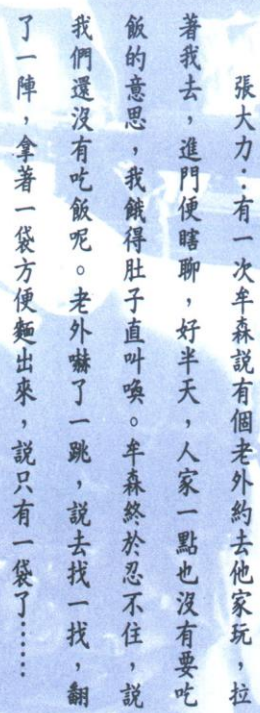 張大力：有一次牟森說有個老外約去他家玩，拉
著我去，進門便瞎聊，好半天，人家一點也沒有要吃
飯的意思，我餓得肚子直叫喚。牟森終於忍不住，說
我們還沒有吃飯呢。老外嚇了一跳，說去找一找，翻
了一陣，拿著一袋方便麵出來，說只有一袋了⋯⋯